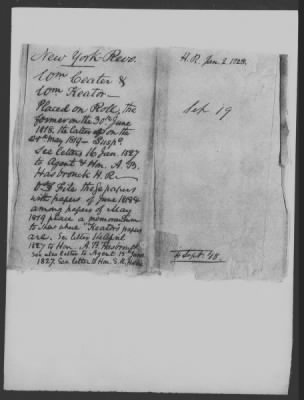 New York Revo.
Wm Ceater &
Wm Keator
Placed on Roll, the
former on the 30th June
1818. the latter on the
May 1819 — Suspd.
See letters 16 Jan. 1827
to Agent & Hon. A. B.
Hasbrouck H.R.
File these papers
with papers of June 1818 &
among papers of May
1819 place a memorandum
to shew where Keator's papers
are. See letter 14 April
1827 to Hon. A. B. Hasbrouck
See also letter to Agent 15th June
1827. See letter to Hon.
H.R. Jan. 2 1828.
Sep 19
4 Sept. '48.